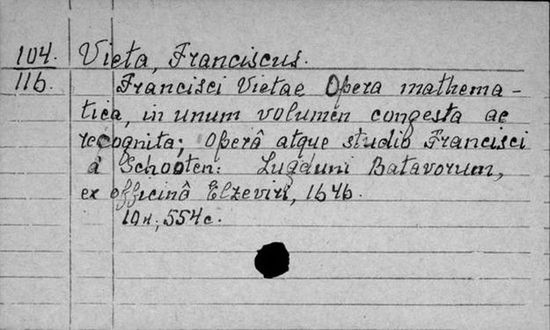 104. Vieta, Franciscus.
116. Francisci Vietae Opera mathema-
tica, in unum volumen congesta ac
recognita; Operâ atque studio Francisci
à Schooten: Lugduni Batavorum,
ex officinâ Elzeviri, 1646.
10н, 554с.